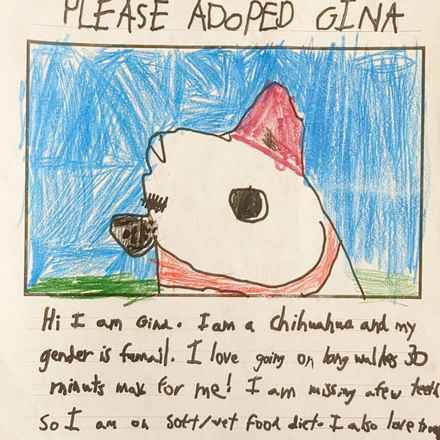 PLEASE ADOPED GINA
Hi I am Gina. I am a chihuahua and my
gender is famail. I love going on long walkes 30
minuts max for me! I am missing a few teeth
So I am on soft/wet food diet. I also love